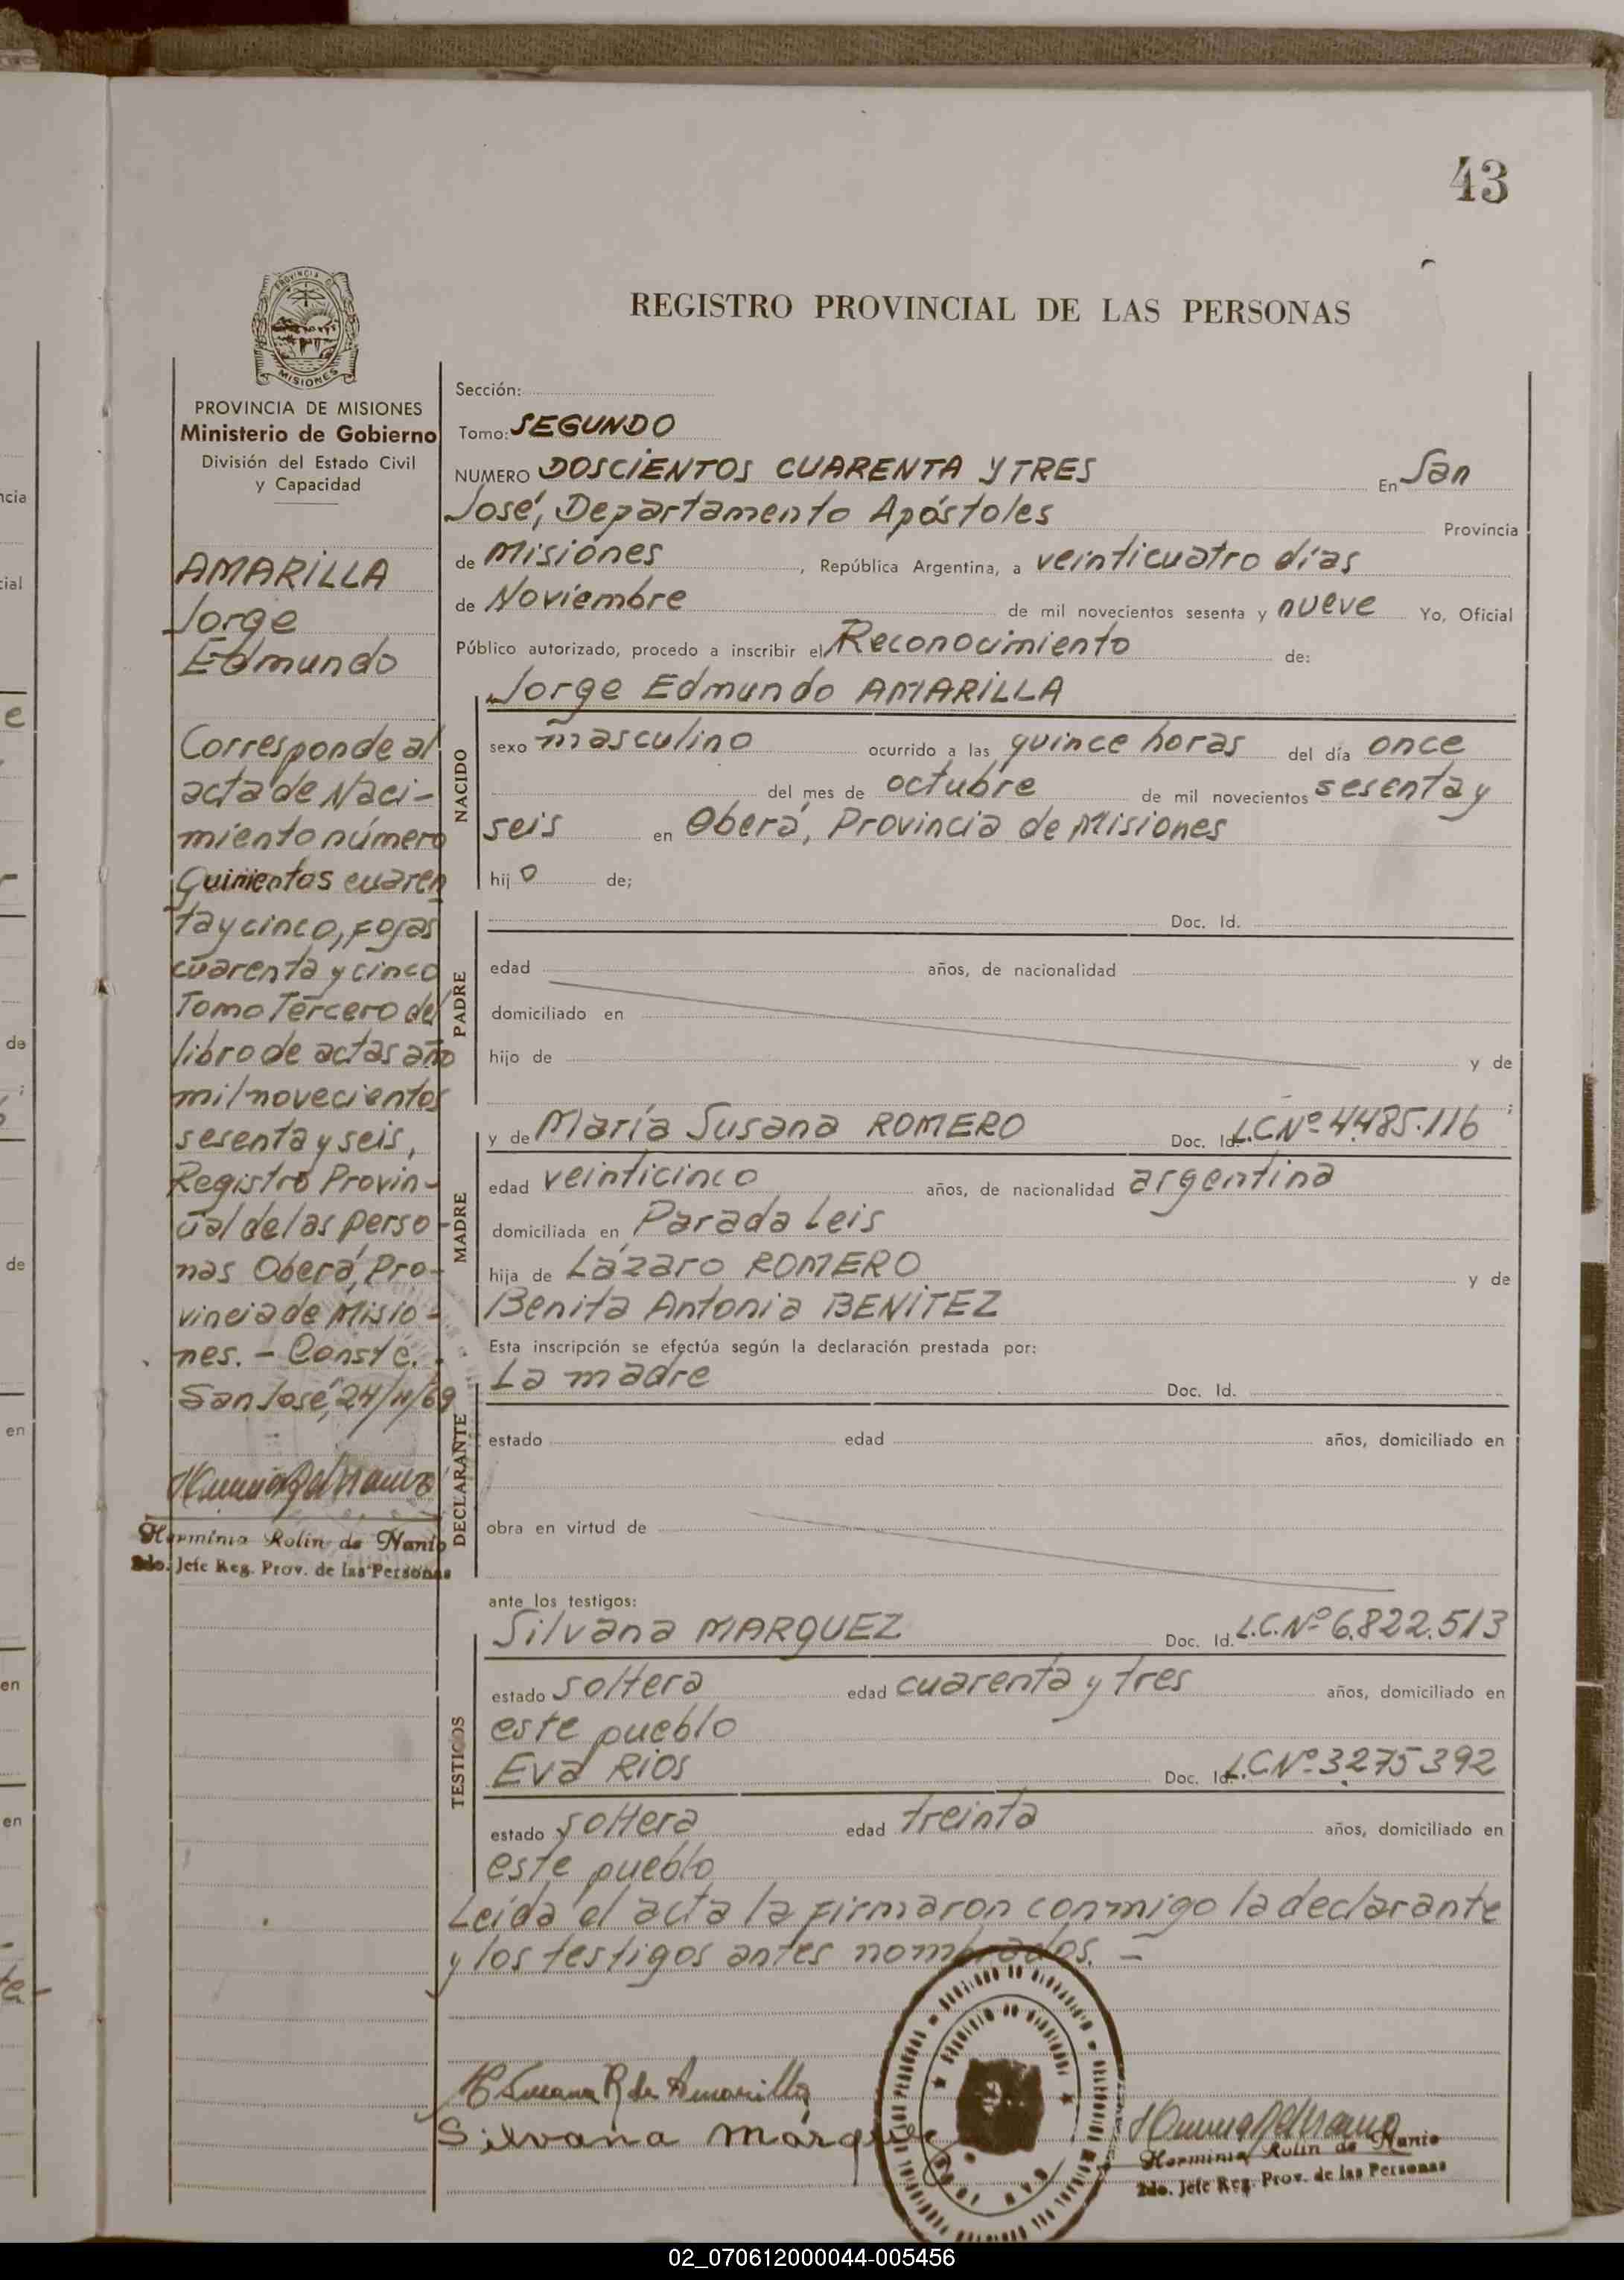 43
REGISTRO PROVINCIAL DE LAS PERSONAS
PROVINCIA
MISIONES
PROVINCIA DE MISIONES
Ministerio de Gobierno
División del Estado Civil
y Capacidad
AMARILLA
Jorge
Edmundo
Corresponde al
acta de Naci-
miento número
Quinientos cuaren
ta y cinco, Fojas
cuarenta y cinco
Tomo Tercero del
libro de actas año
mil novecientos
sesenta y seis,
Registro Provin-
cial de las perso-
nas Oberá, Pro-
vincia de Misio-
nes. - Conste.
San José, 24/11/69
Herminia Rolin de Nanio
2do. Jefe Reg. Prov. de las Personas
Sección:
Tomo: SEGUNDO
NUMERO DOSCIENTOS CUARENTA Y TRES En San
José, Departamento Apóstoles Provincia
de Misiones, República Argentina, a veinticuatro días
de Noviembre de mil novecientos sesenta y nueve Yo, Oficial
Público autorizado, procedo a inscribir el Reconocimiento de:
Jorge Edmundo AMARILLA
NACIDO
sexo masculino ocurrido a las quince horas del día once
del mes de octubre de mil novecientos sesenta y
seis en Oberá, Provincia de Misiones
hij o de;
PADRE
Doc. Id.
edad años, de nacionalidad
domiciliado en
hijo de y de
;
MADRE
y de María Susana ROMERO Doc. Id. L.C Nº 4.485.116
edad veinticinco años, de nacionalidad argentina
domiciliada en Parada Leis
hija de Lázaro ROMERO y de
Benita Antonia BENITEZ
Esta inscripción se efectúa según la declaración prestada por:
DECLARANTE
La madre Doc. Id.
estado edad años, domiciliado en
obra en virtud de
ante los testigos:
TESTIGOS
Silvana MARQUEZ Doc. Id. L.C. Nº 6.822.513
estado soltera edad cuarenta y tres años, domiciliado en
este pueblo
Eva RIOS Doc. Id. L.C Nº 3.275392
estado soltera edad treinta años, domiciliado en
este pueblo
Leída el acta la firmaron conmigo la declarante
y los testigos antes nombrados. -
M Susana R de Amarilla
Silvana Márquez
Herminia Rolin de Nanio
2do. Jefe Reg. Prov. de las Personas
02_070612000044-005456